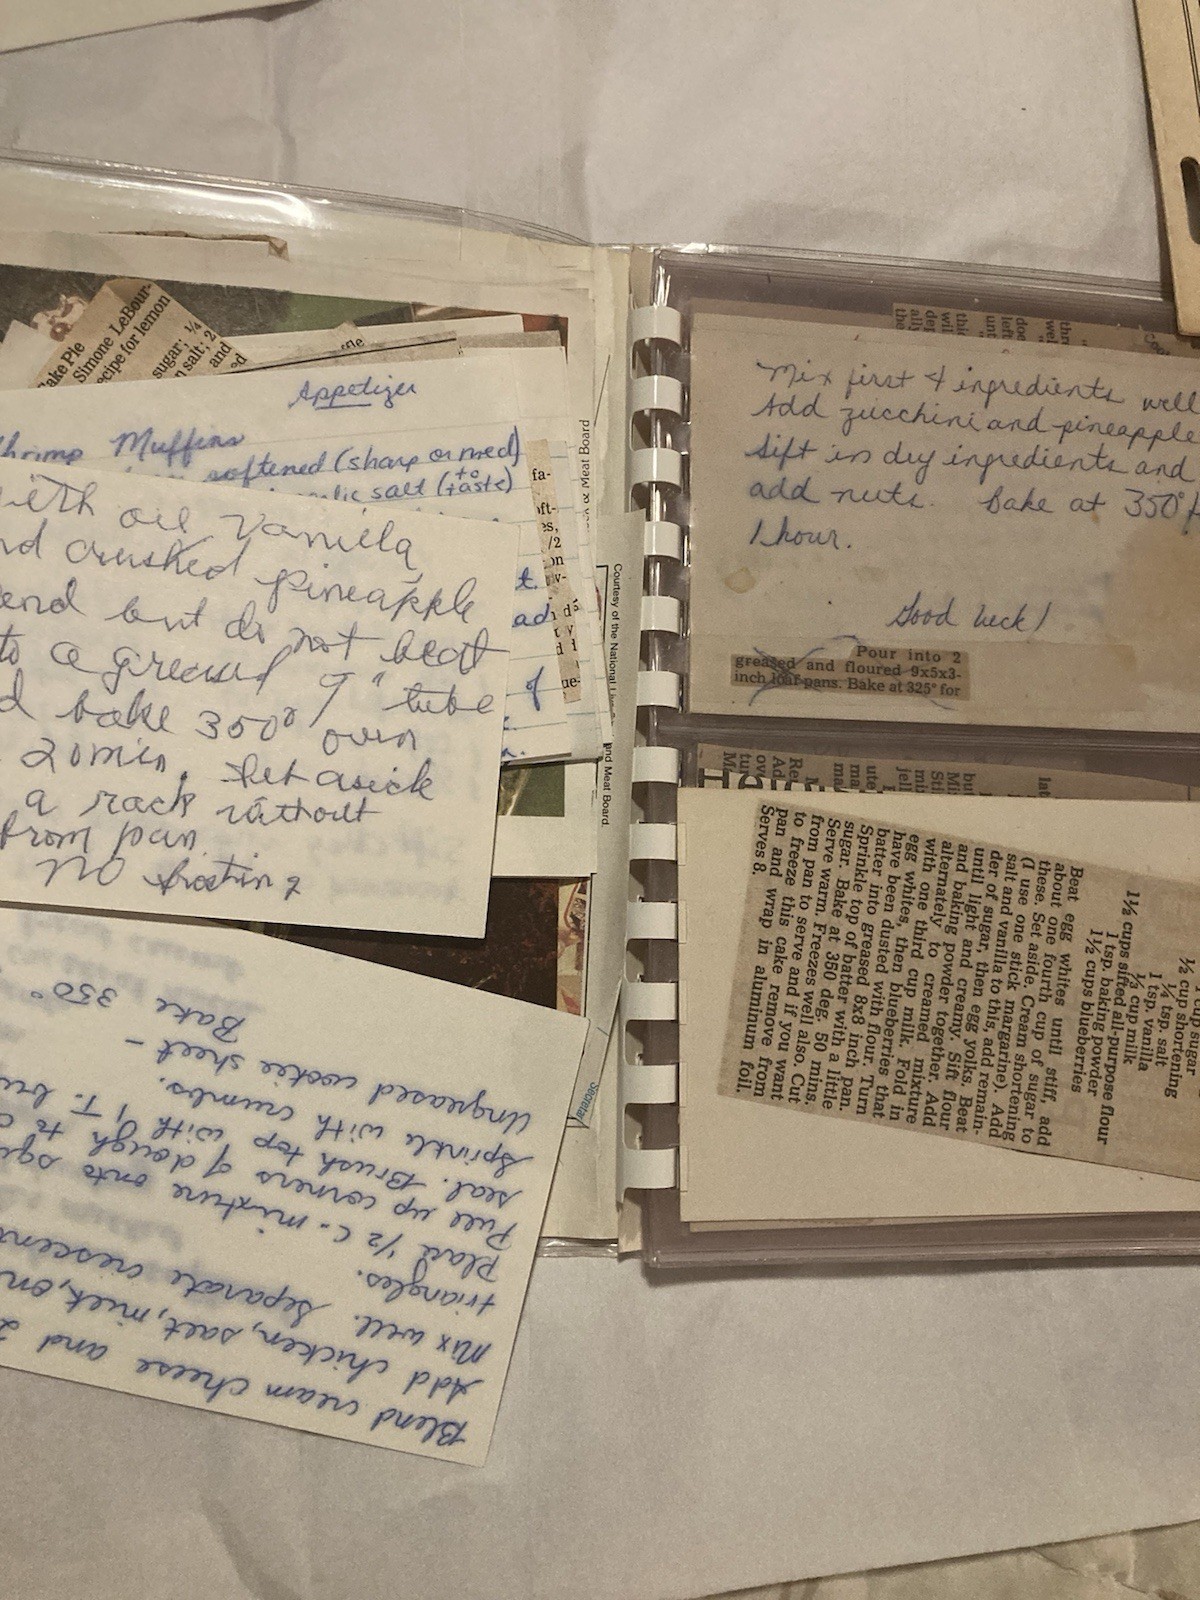 ake Pie
Simone LeBour-
ecipe for lemon
sugar; ¼
n salt; 2
and
ed
Appetizer
hrimp Muffins
softened (sharp or med)
salt (to taste)
fa-
oft-
es,
/2
on
w-
t.
ad
of
ue-
n.
k & Meat Board
Courtesy of the National Live
and Meat Board.
Secretary
ith oil Vanilla
nd crushed pineapple
end but do not beat
to a greased 9" tube
d bake 350° oven
20 min. Set aside
a rack without
from pan
NO frosting
Blend cream cheese and 2
Add chicken, salt, milk, on
Mix well. Separate crescen
triangles.
Place ½ c. mixture onto squ
Pull up corners of dough to c
seal. Brush top with 1 T. bu
Sprinkle with crumbs.
Ungreased cookie sheet -
Bake 350°
Mix first 4 ingredients well
Add zucchini and pineapple
Sift in dry ingredients and
add nuts. Bake at 350° f
1 hour.
Good luck!
Pour into 2
greased and floured 9x5x3-
inch loaf pans. Bake at 325° for
cup sugar
½ cup shortening
¼ tsp. salt
1 tsp. vanilla
⅓ cup milk
1½ cups sifted all-purpose flour
1 tsp. baking powder
1½ cups blueberries
Beat egg whites until stiff, add
about one fourth cup of sugar to
these. Set aside. Cream shortening
(I use one stick margarine). Add
salt and vanilla to this, add remain-
der of sugar, then egg yolks. Beat
until light and creamy. Sift flour
and baking powder together. Add
alternately to creamed mixture
with one third cup milk. Fold in
egg whites, then blueberries that
have been dusted with flour. Turn
batter into greased 8x8 inch pan.
Sprinkle top of batter with a little
sugar. Bake at 350 deg. 50 mins.
Serve warm. Freezes well also. Cut
from pan to serve and if you want
to freeze this cake remove from
pan and wrap in aluminum foil.
Serves 8.